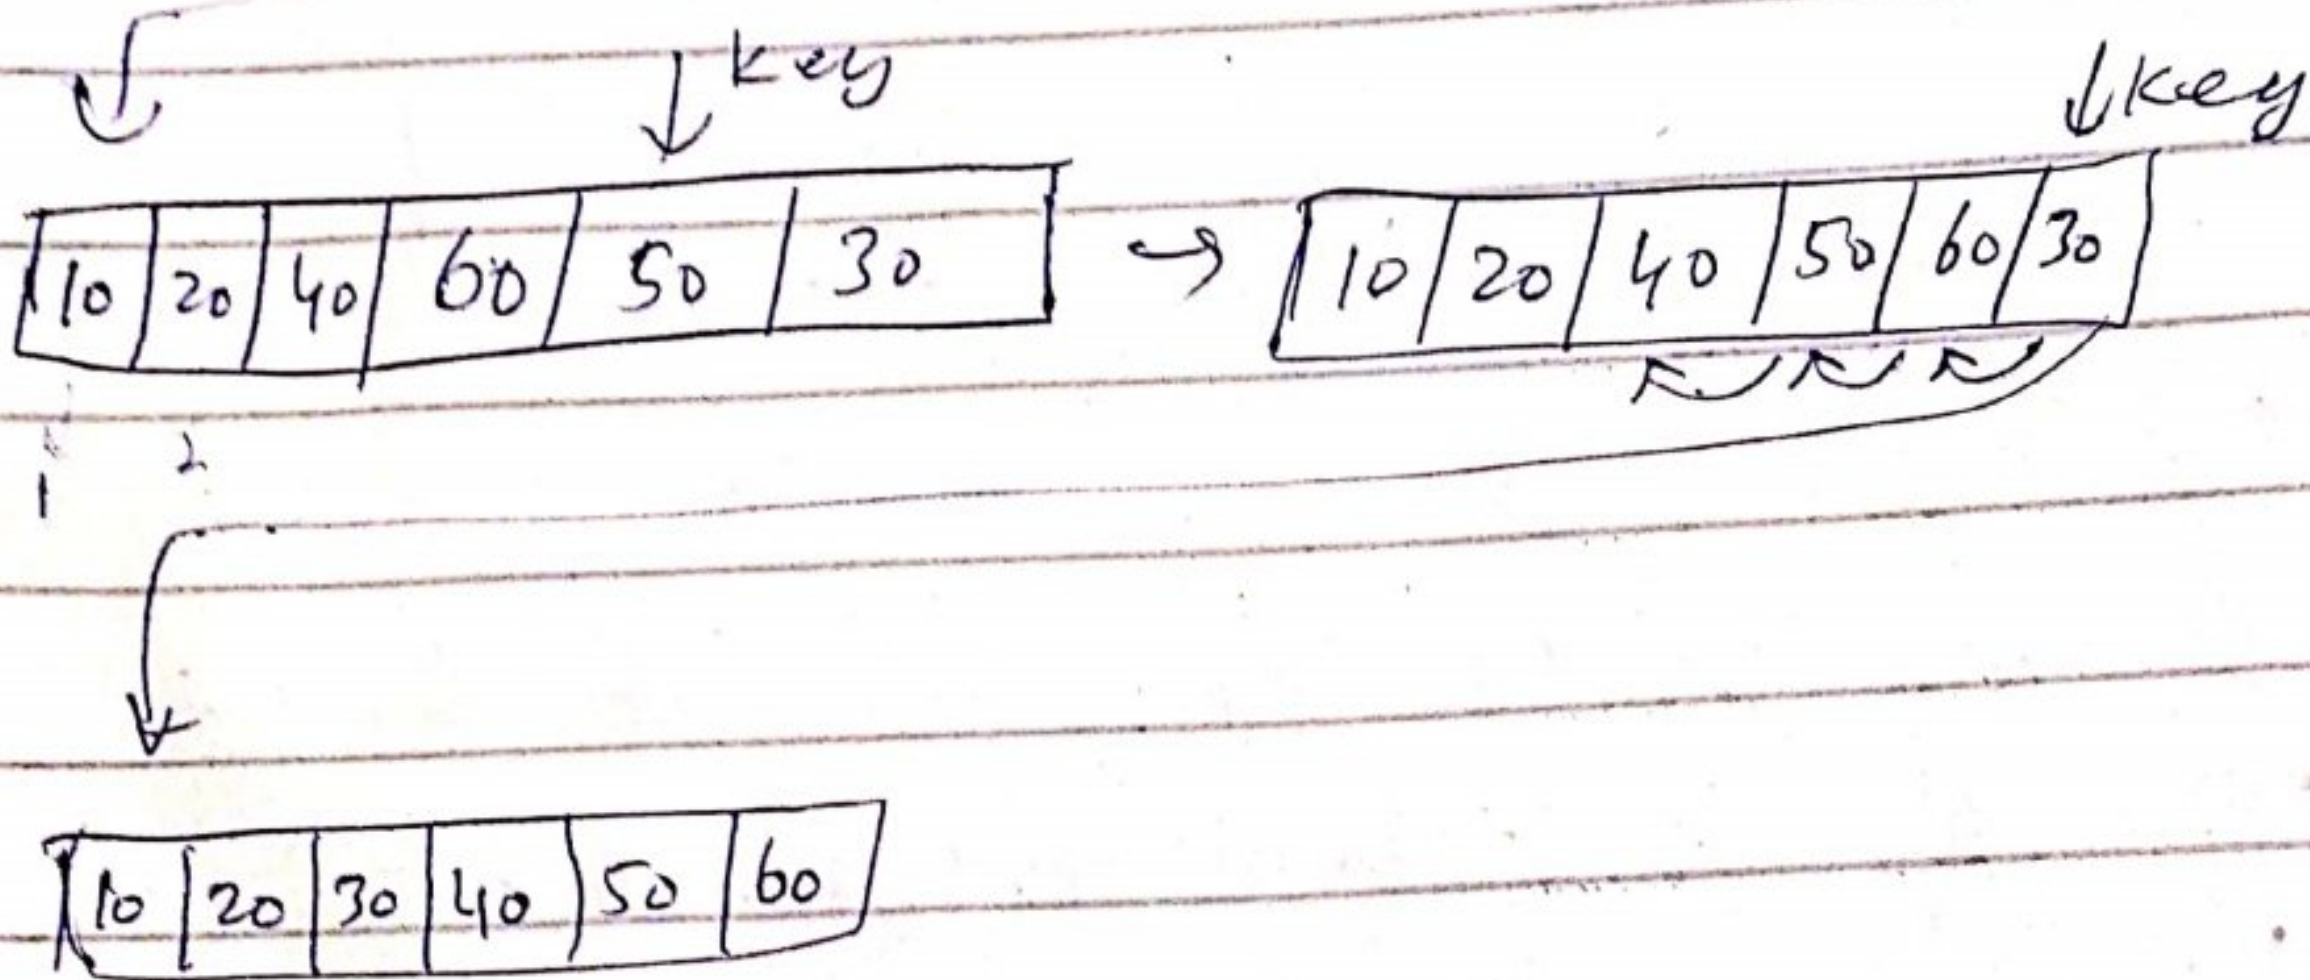 key
key
10 20 40 60 50 30 → 10 20 40 50 60 30
1 2
10 20 30 40 50 60